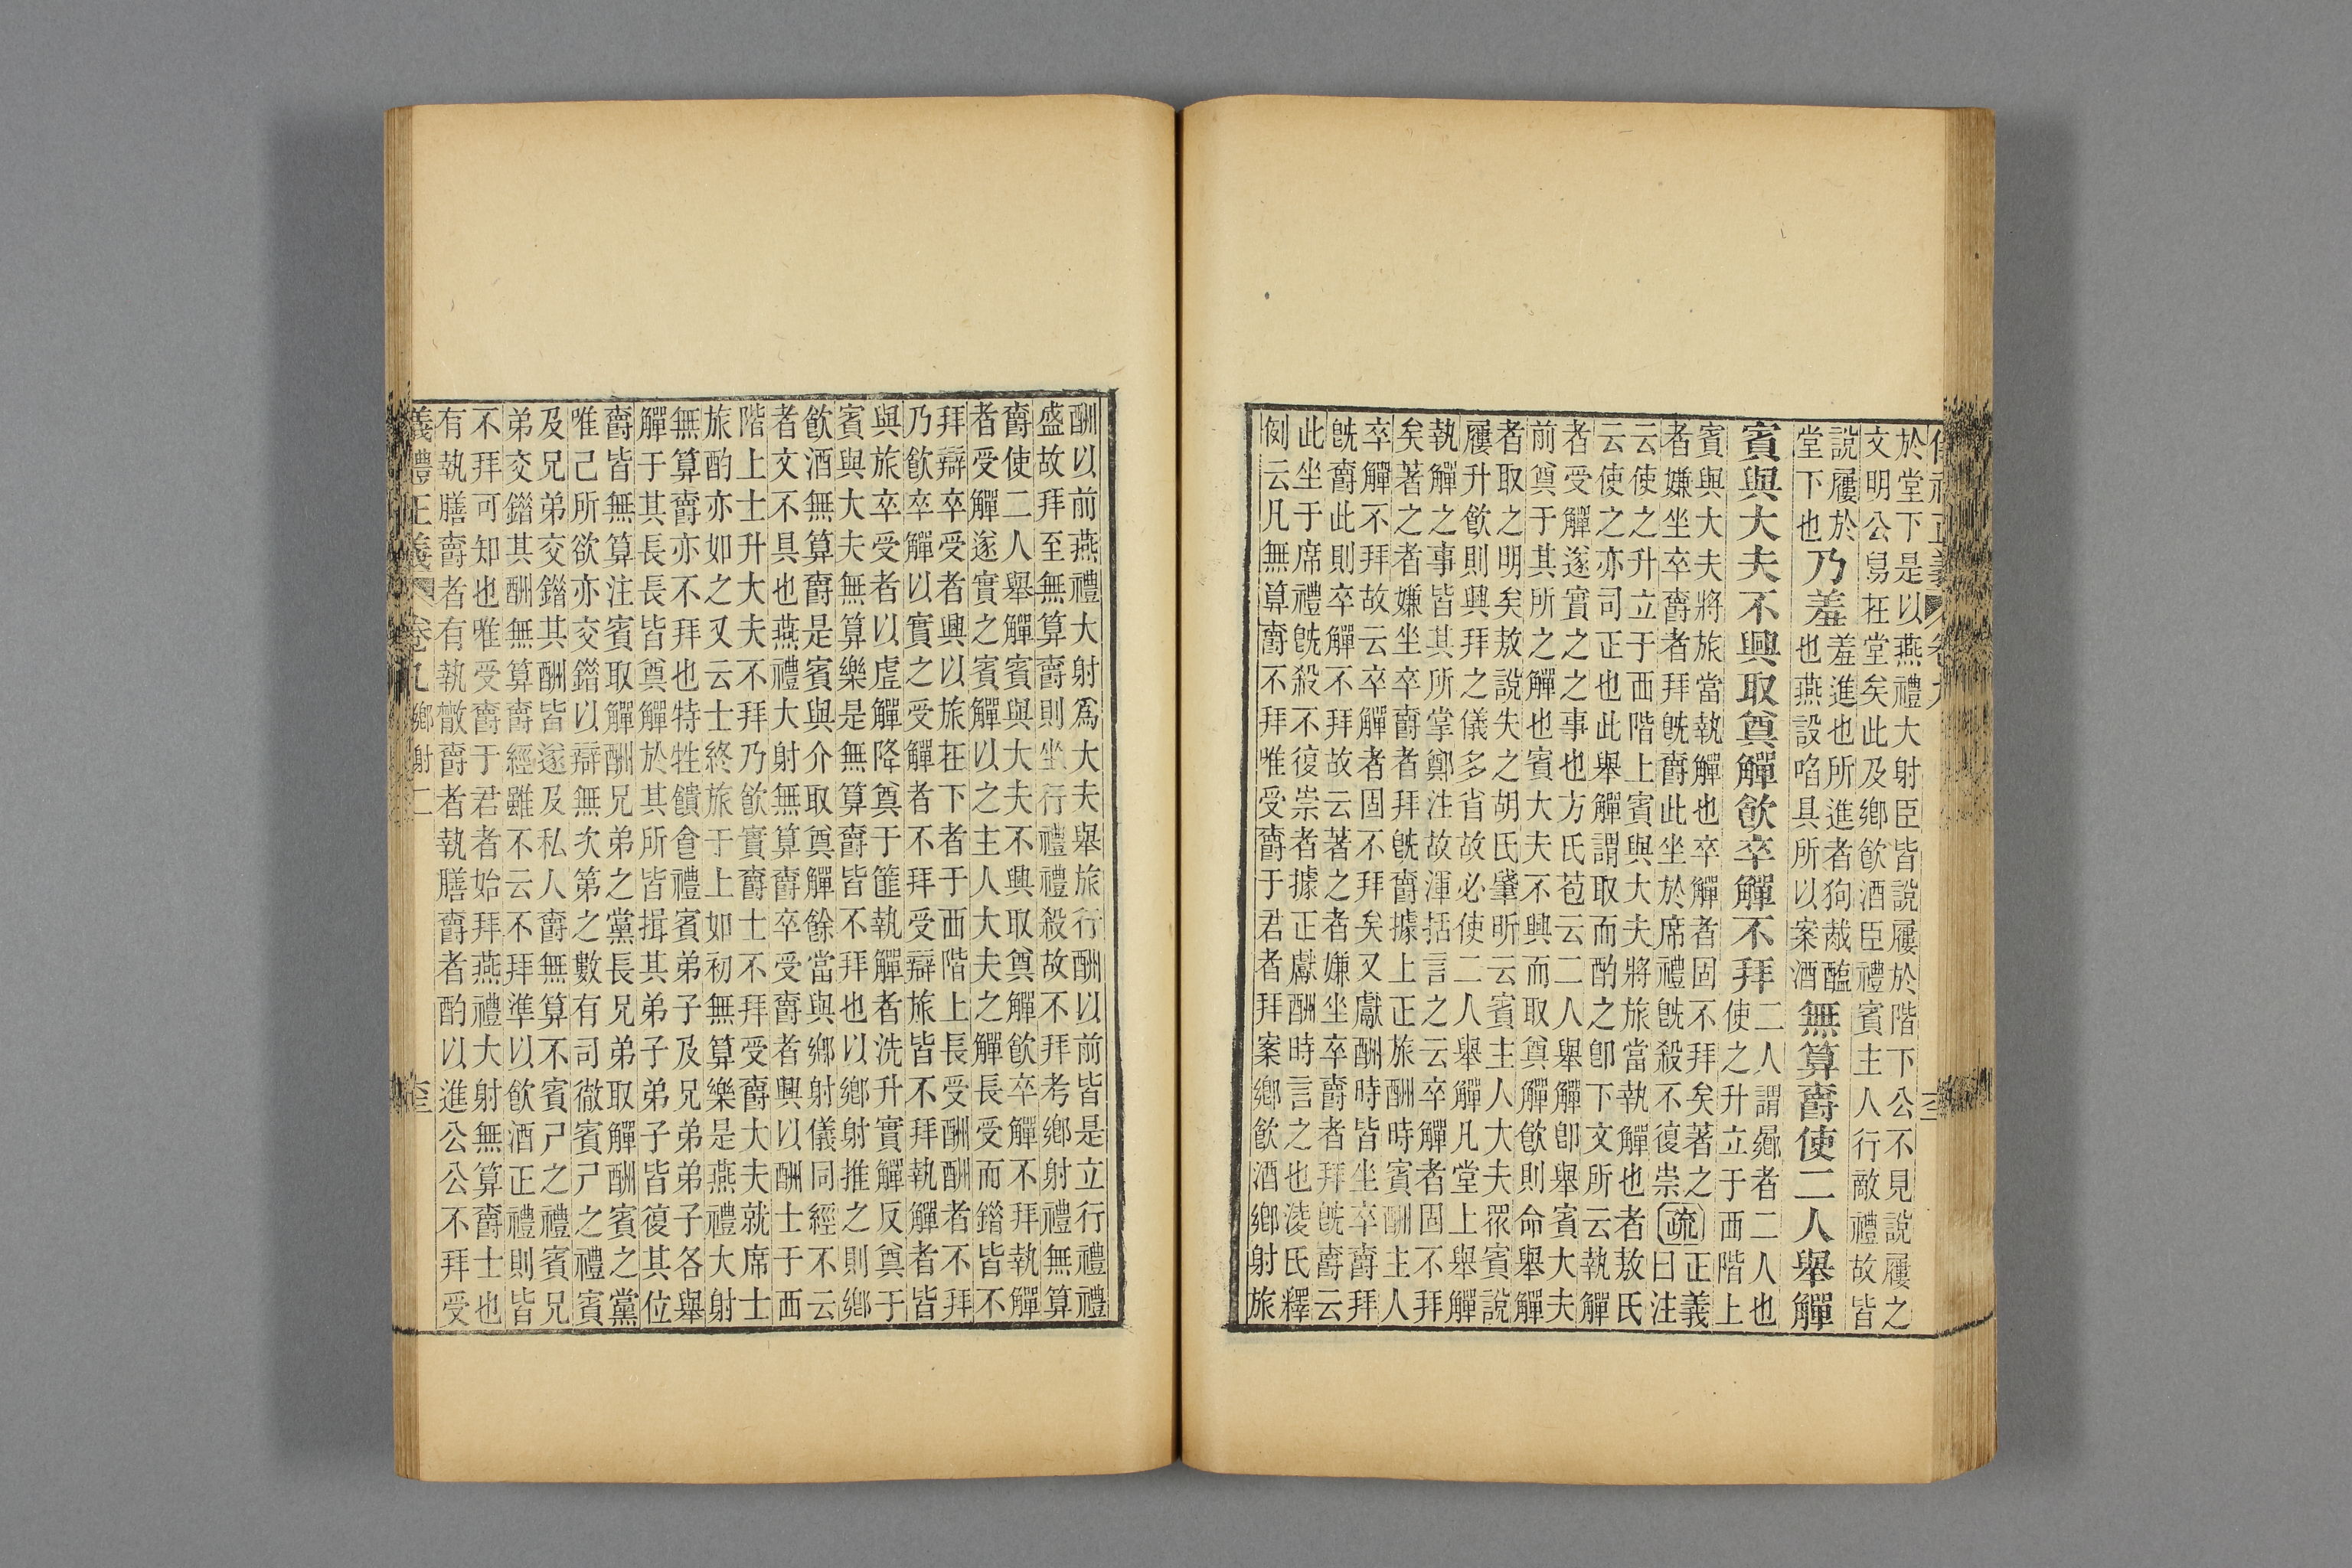 儀禮正義 卷九
於堂下是以燕禮大射臣皆說屨於階下公不見說屨之
文明公舄在堂矣此及鄉飲酒臣禮賓主人行敵禮故皆
說屨於
堂下也
乃羞
羞進也所進者狗胾醢
也燕設啗具所以案酒
無算爵使二人舉觶
賓與大夫不興取奠觶飲卒觶不拜
二人謂曏者二人也
使之升立于西階上
賓與大夫將旅當執觶也卒觶者固不拜矣著之
者嫌坐卒爵者拜旣爵此坐於席禮旣殺不復崇
疏
正義
曰注
云使之升立于西階上賓與大夫將旅當執觶也者敖氏
云使之亦司正也此舉觶謂取而酌之卽下文所云執觶
者受觶遂實之之事也方氏苞云二人舉觶卽舉賓大夫
前奠于其所之觶也賓大夫不興而取奠觶飲則命舉觶
者取之明矣敖說失之胡氏肇昕云賓主人大夫眾賓說
屨升飲則興拜之儀多省故必使二人舉觶凡堂上舉觶
執觶之事皆其所掌鄭注故渾括言之云卒觶者固不拜
矣著之者嫌坐卒爵者拜旣爵據上正旅酬時賓酬主人
卒觶不拜故云卒觶者固不拜矣又獻酬時皆坐卒爵拜
旣爵此則卒觶不拜故云著之者嫌坐卒爵者拜旣爵云
此坐于席禮旣殺不復崇者據正獻酬時言之也淩氏釋
例云凡無算爵不拜唯受爵于君者拜案鄉飲酒鄉射旅
酬以前燕禮大射爲大夫舉旅行酬以前皆是立行禮禮
盛故拜至無算爵則坐行禮禮殺故不拜考鄉射禮無算
爵使二人舉觶賓與大夫不興取奠觶飲卒觶不拜執觶
者受觶遂實之賓觶以之主人大夫之觶長受而錯皆不
拜辯卒受者興以旅在下者于西階上長受酬酬者不拜
乃飲卒觶以實之受觶者不拜受辯旅皆不拜執觶者皆
與旅卒受者以虛觶降奠于篚執觶者洗升實觶反奠于
賓與大夫無算樂是無算爵皆不拜也以鄉射推之則鄉
飲酒無算爵是賓與介取奠觶餘當與鄉射儀同經不云
者文不具也燕禮大射無算爵卒受爵者興以酬士于西
階上士升大夫不拜乃飲實爵士不拜受爵大夫就席士
旅酌亦如之又云士終旅于上如初無算樂是燕禮大射
無算爵亦不拜也特牲饋食禮賓弟子及兄弟弟子各舉
觶于其長長皆奠觶於其所皆揖其弟子弟子皆復其位
爵皆無算注賓取觶酬兄弟之黨長兄弟取觶酬賓之黨
唯己所欲亦交錯以辯無次第之數有司徹賓尸之禮賓
及兄弟交錯其酬皆遂及私人爵無算不賓尸之禮賓兄
弟交錯其酬無算爵經雖不云不拜準以飲酒正禮則皆
不拜可知也唯受爵于君者始拜燕禮大射無算爵士也
有執膳爵者有執散爵者執膳爵者酌以進公公不拜受
儀禮正義 卷九 鄉射二